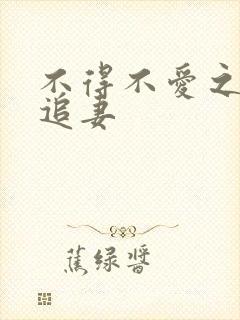 不得不爱之
追妻
蕉绿酱